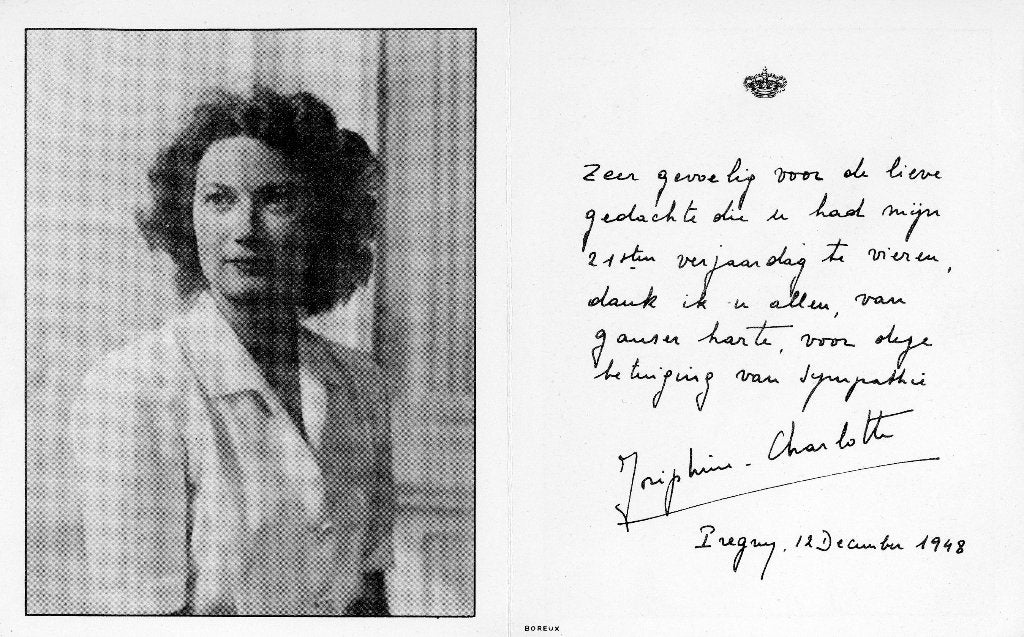 Zeer gevoelig voor de lieve
gedachte die u had mijn
21sten verjaardag te vieren,
dank ik u allen, van
ganser harte, voor deze
betuiging van sympathie
Joséphine-Charlotte
Pregny, 12 December 1948
BOREUX